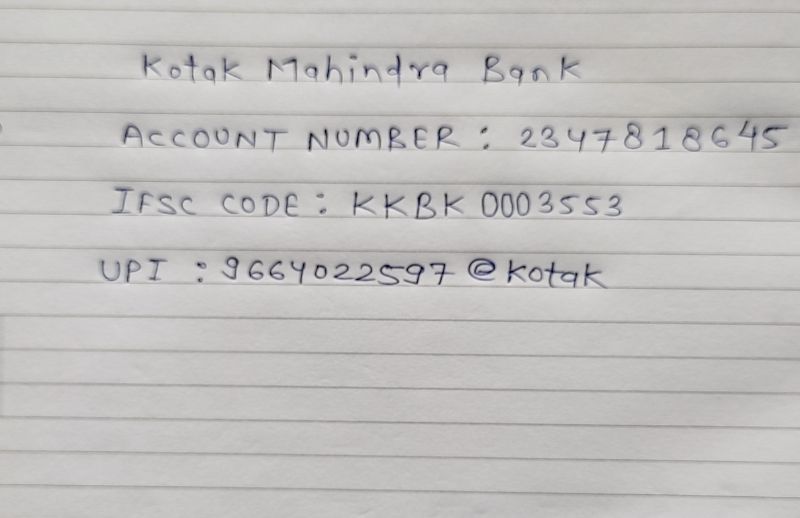 Kotak Mahindra Bank
ACCOUNT NUMBER : 2347818645
IFSC CODE : KKBK 0003553
UPI : 9664022597@kotak